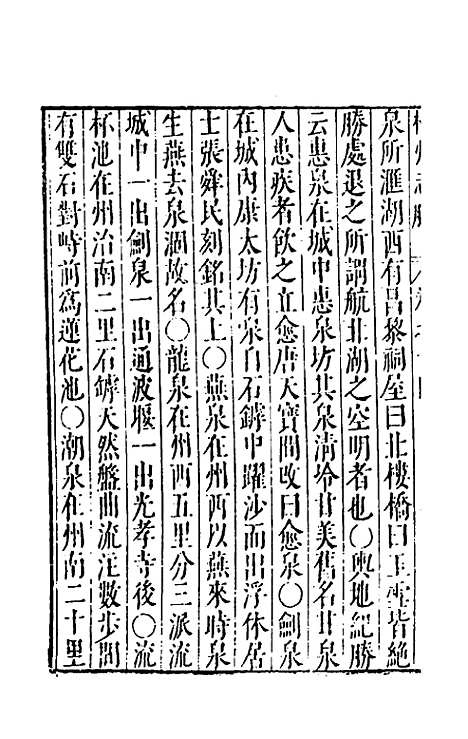 泉所滙湖西有昌黎祠堂曰北樓橋曰玉雪皆絶
勝處退之所謂航北湖之空明者也〇輿地紀勝
云惠泉在城中惠泉坊其泉清冷甘美舊名甘泉
人患疾者飲之立愈唐天寶間改曰愈泉〇劍泉
在城內康太坊有泉自石罅中躍沙而出浮休居
士張舜民刻銘其上〇燕泉在州西以燕來時泉
生燕去泉涸故名〇龍泉在州西五里分三派流
城中一出劍泉一出通波堰一出光孝寺後〇流
杯池在州治南二里石罅天然盤曲流注數步間
有雙石對峙前爲蓮花池〇潮泉在州南二十里